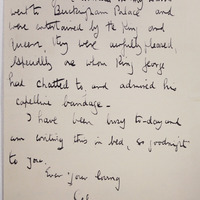 went to Buckingham Palace and
were entertained by the King and
Queen. They were awfully pleased
especially one whom King George
had chatted to, and admired his
capelline bandage.
I have been busy to-day and
am writing this in bed, so goodnight
to you.
Ever your loving